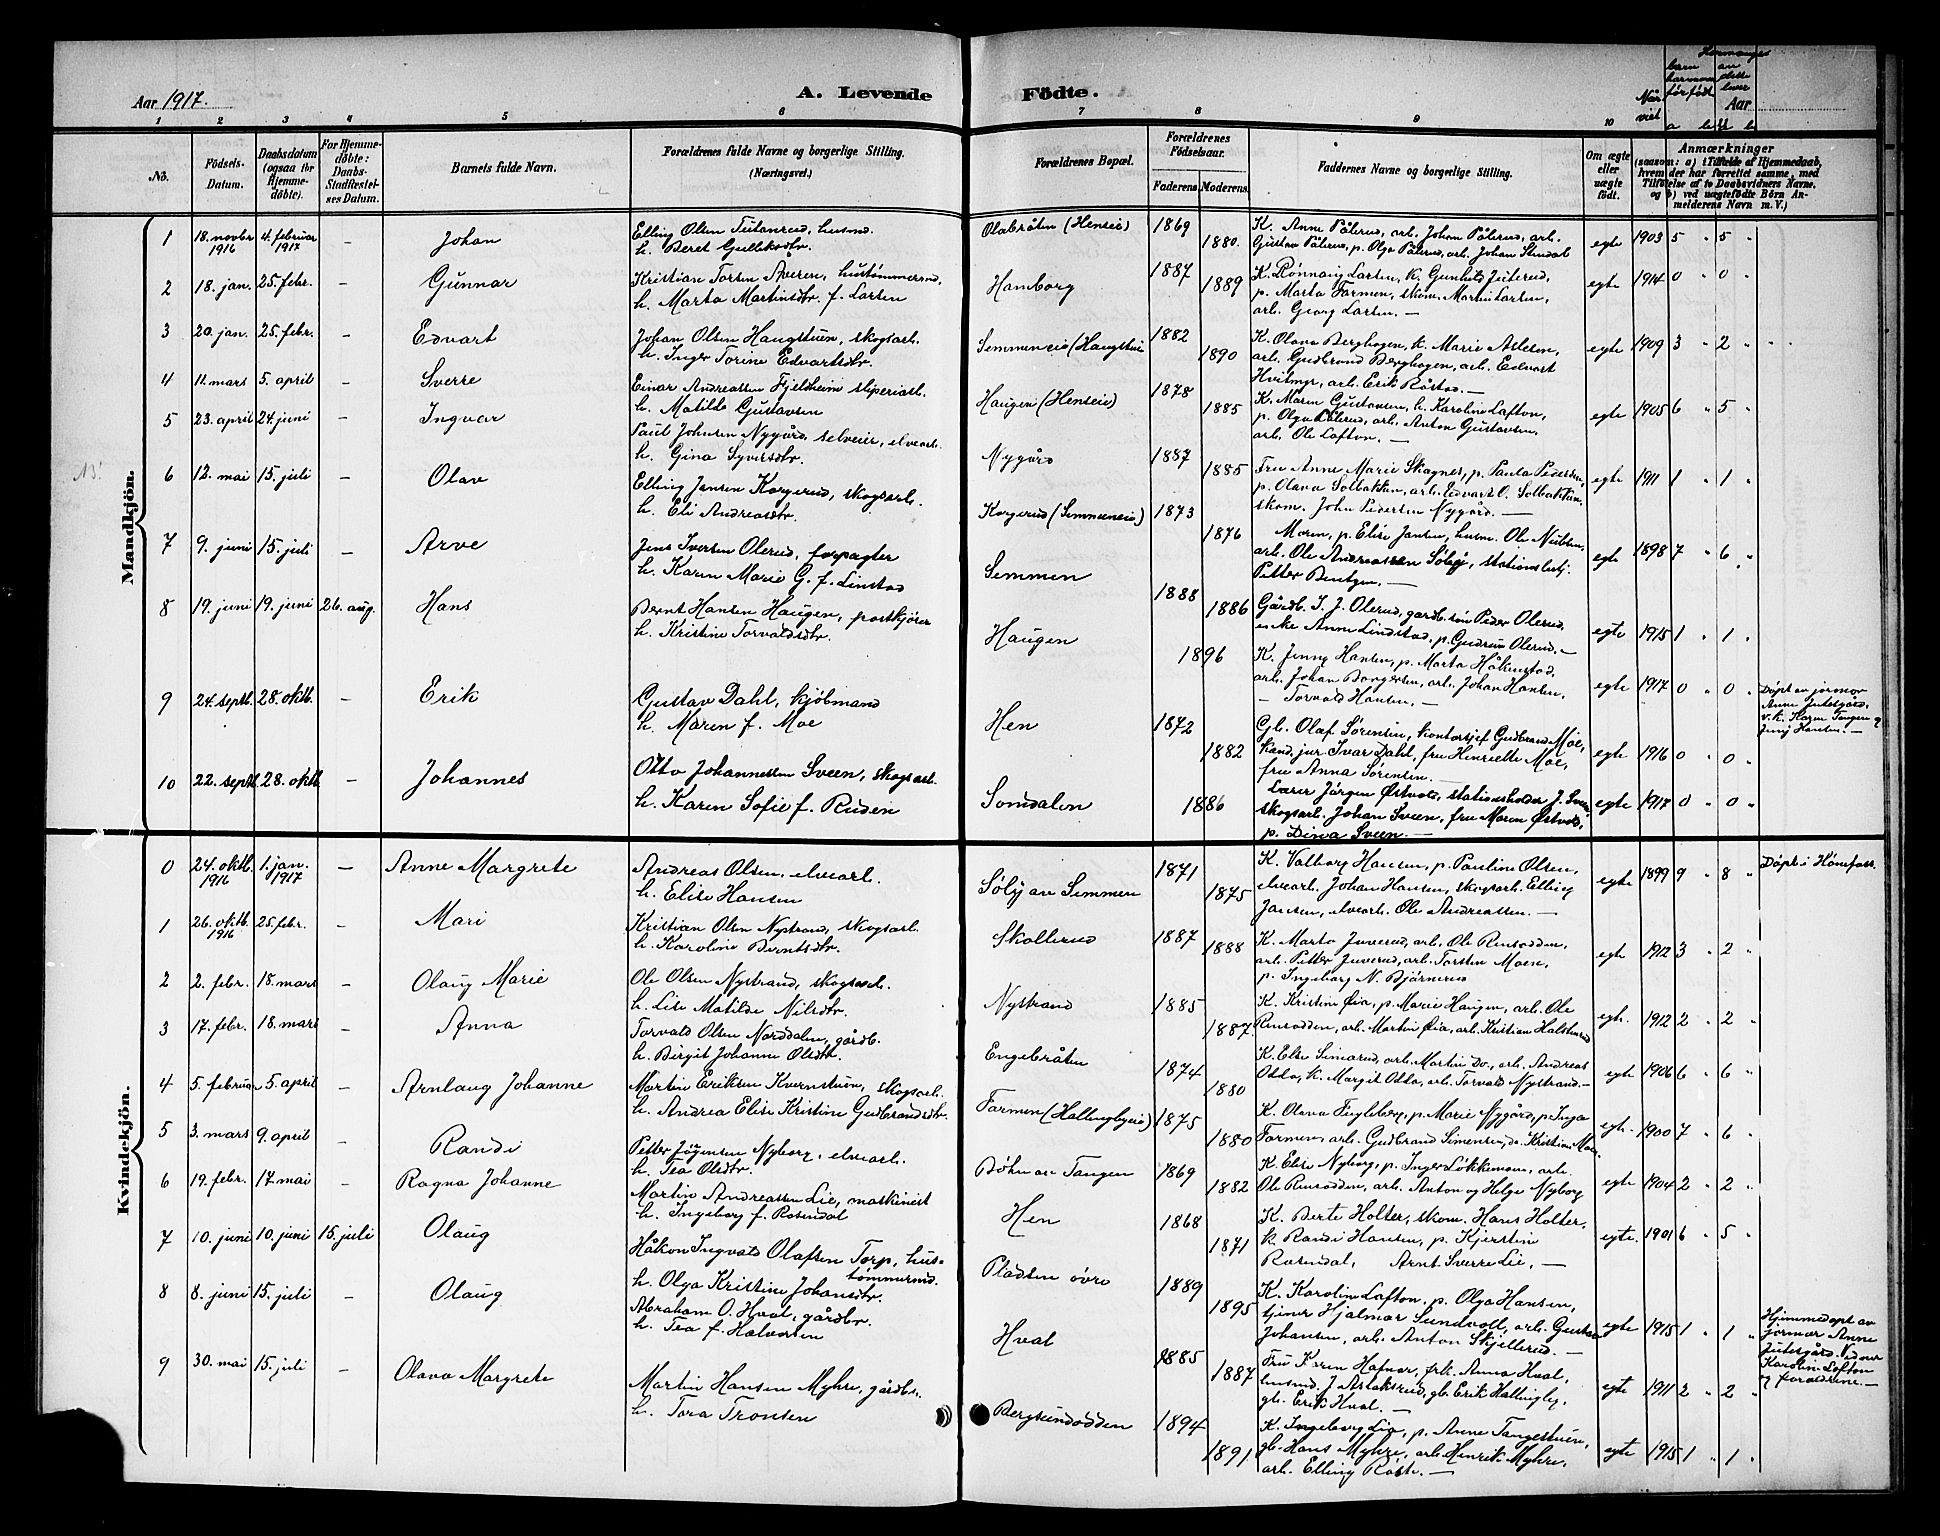 Aar 1917.
A. Levende
Födte.
Aar
1 2 3 4 5 6 7 8 9 10
No.
Födsels-Datum.
Daabsdatum (ogsaa for Hjemme-döbte).
For Hjemme-döbte: Daabs-Stadfæstelses Datum.
Barnets fulde Navn.
Forældrenes fulde Navne og borgerlige Stilling. (Næringsvei.)
Forældrenes Bopæl.
Forældrenes Födselsaar.
Faderens. Moderens.
Faddernes Navne og borgerlig Stilling.
Om ægte eller uægte födt.
Anmærkninger
(saasom: a) i Tilfælde af Hjemmedaab, hvem der har forrettet samme, med Tilföielse af to Daabsvidners Navne, og b) ved uægtefödte Börn Anmelderens Navn m. V.)
Mandkjön.
1 18. novbr 1916 4. februar 1917 - Johan
Elling Olsen Teitanrud, husmd.
h. Beret Gulleksdtr.
Olabråten (Henseie) 1869 1880.
K. Anne Pålerud, arb. Johan Pålerud, arb.
Gustav Pålerud, p. Olga Pålerud, arb. Johan Stendal
egte 1903 5 " 5 "
2 18. jan. 25. febr. - Gunnar
Kristian Torsen Åveren, hustømmermd,
h. Marta Martinsdtr. f. Larsen
Hamborg 1887 1889
K. Rønnaug Larsen, k. Gunhild Juterud,
p. Marta Farmen, skom. Martin Larsen,
arb. Georg Larsen. -
egte 1914 0 " 0 "
3 20. jan. 25. febr. - Edvart
Johan Olsen Haugstuen, skogsarb.
h. Inger Torine Edvartsdtr.
Semmeneie (Haugstuen 1882 1890
K. Olava Berghagen, k. Marie Aslesen,
arb. Gudbrand Berghagen, arb. Edvart
Hvitmyr, arb. Erik Råstad. -
egte 1909 3 " 2 "
4 11. mars 5. april - Sverre
Einar Andreassen Fjeldheim sliperiarb.
h. Matilde Gustavsen
Haugen (Henseie) 1878 1885
K. Maren Gustavsen, k. Karoline Lafton,
p. Olga Pålerud, arb. Anton Gustavsen.
arb. Ole Lafton. -
egte 1905 6 " 5 "
5 23. april 24. juni - Ingvar
Paul Johnsen Nygård, selveier, elvearb.
h. Gina Syversdtr.
Nygård 1887 1885
Fru Anne Marie Skagnes, p. Paula Pedersen,
p. Olava Solbakken, arb. Edvart O. Solbakken,
skom. John Pedersen Nygård. -
egte 1911 1 " 1 "
6 12. mai 15. juli - Olav
Elling Jansen Korgerud, skogsarb.
h. Eli Andreasdtr.
Korgerud (Semmeneie) 1873 1876
Moren, p. Elise Jansen, husm. Ole Neibsen,
arb. Ole Andreassen Søbøj, stationsbetj.
Petter Bentzen. -
egte 1898 7 " 6 "
7 9. juni 15. juli - Arve
Jens Iversen Olerud, forpagter
h. Karen Marie G. f. Linstad
Semmen 1888 1886
Gårdb. I. J. Olerud, gårdb.søn Peder Olerud,
enke Anne Lindstad, p. Gudrun Olerud. -
egte 1915 1 " 1 "
8 19. juni 19. juni 26. aug. Hans
Bernt Hansen Haugen, postkjører
h. Kristine Torvaldsdtr.
Haugen 1896
K. Jenny Hansen, p. Marta Håkenstad,
arb. Johan Borgersen, arb. Johan Hansen,
- Torvald Hansen, -
egte 1917 0 " 0 "
Døpt av jormor
v. k. Karen Tangen og
Jenij Hansen. -
9 24. septb. 28. oktb. - Erik
Gustav Dahl, kjøbmand
h. Maren f. Moe
Hen 1872 1882
Gb. Olaf Sørensen, kontorsjef Gudbrand Moe,
kand. jur. Ivar Dahl, fru Henriette Moe,
fru Anna Sørensen. -
egte 1916 0 " 0 "
10 22. septb. 28. oktb. - Johannes
Otto Johannessen Sveen, skogsarb.
h. Karen Sofie f. Ruden
Somdalen 1886
Lærer Jørgen Østvold, stationsholder J. Sveen
skogsarb. Johan Sveen, fru Maren Østvold,
p. Dina Sveen. -
egte 1917 0 " 0 "
Kvindekjön.
0 24. oktb. 1916 1. jan. 1917 - Anne Margrete
Andreas Olsen, elvearb.
h. Elise Hansen
Søbij av Semmen 1871 1875
K. Valborg Hansen, p. Pauline Olsen,
elvearb. Johan Hansen, skogsarb. Elling
Jansen, elvearb. Ole Andreassen. -
egte 1899 9 " 8 "
Døpt i Hønefoss.
1 26. oktb. 1916 25. febr. - Mari
Kristian Olsen Nystrand, skogsarb.
h. Karoline Berntsdtr.
Skollerud 1887 1888
K. Marta Juverud, arb. Ole Rensodden,
arb. Petter Juverud, arb. Torsten Moen,
p. Ingeborg N. Bjørnerud
egte 1912 3 " 2 "
2 2. febr. 18. mars - Olaug Marie
Ole Olsen Nystrand, skogsarb.
h. Lise Matilde Nilsdtr.
Nystrand 1885 1887.
K. Kristine Øia, p. Marie Haugen, arb. Ole
Rensodden, arb. Martin Øia, arb. Kristian Halstenrud
egte. 1912 2 " 2 "
3 17. febr. 18. mars - Anna
Torvald Olsen Norddalen, gårdb.
h. Birgit Johanne Olsdtr.
Engebråten 1874 1880
K. Else Simarud, arb. Martin Do., arb. Andreas
Odda, k. Margit Odda, arb. Torvald Nystrand. -
egte 1906 6 " 6 "
4 5. februar 5. april - Arnlaug Johanne
Martin Eriksen Kvernstuen, skogsarb.
h. Andrea Elise Kristine Gudbrandsdtr.
Farmen (Hallingbyeie) 1875 1880
K. Olava Fingleberg, p. Marie Nygård, p. Inga
Farmen, arb. Gudbrand Simensen, do. Kristian Moe.
egte. 1900 7 " 6 "
5 3. mars 9. april - Randi
Petter Jørgensen Nyborg, elvearb.
h. Tea Olsdtr.
Bøhn av Tangen 1869 1882
K. Elise Nyborg, p. Inger Løkkemoen, arb.
Ole Rensodden, arb. Anton og Helge Nyborg
egte 1904 2 " 2 "
6 19. febr. 17. mai - Ragna Johanne
Martin Andreassen Lie, maskinist
h. Ingeborg f. Rosendal
Hen 1868 1871
K. Berte Holter, skom. Hans Holter,
k. Randi Hansen, p. Kjerstin
Rosendal, Arnt Sverre Lie, -
egte. 1901 6 " 5 "
7 10. juni 10. juni 15. juli Olaug
Håkon Ingvald Olafsen Torp, hus-
tømmermd.
h. Olga Kristine Johansdtr.
Pladsen øvre 1889 1895
K. Karoline Lafton, p. Olga Hansen,
tjener Hjalmar Sundvoll, arb. Gustav
Johansen, arb. Anton Skjellerud. -
egte 1915 1 " 1 "
Hjemmedøpt av
jormor Anne
Jutesgård. Vidner
Karolin Lofton
og forældrene. -
8 8. juni 15. juli - Olaug
Abraham O. Hval, gårdbr.
h. Tea f. Halvorsen
Hval 1885 1887
Fru Karen Hafnor, frk. Anna Hval,
husmd. J. Aslaksrud, gb. Erik Hallingby,
gb. Erik Hval. -
egte 1911 2 " 2 "
9 30. mai 15. juli - Olava Margrete
Martin Hansen Myhre, gårdbr.
h. Tora Tronsen
Bergsundodden 1894 1891
K. Ingeborg Lia, p. Anne Tangestuen,
gb. Hans Myhre, arb. Henrik Myhre,
arb. Elling Røste. -
egte 1915 1 " 1 "